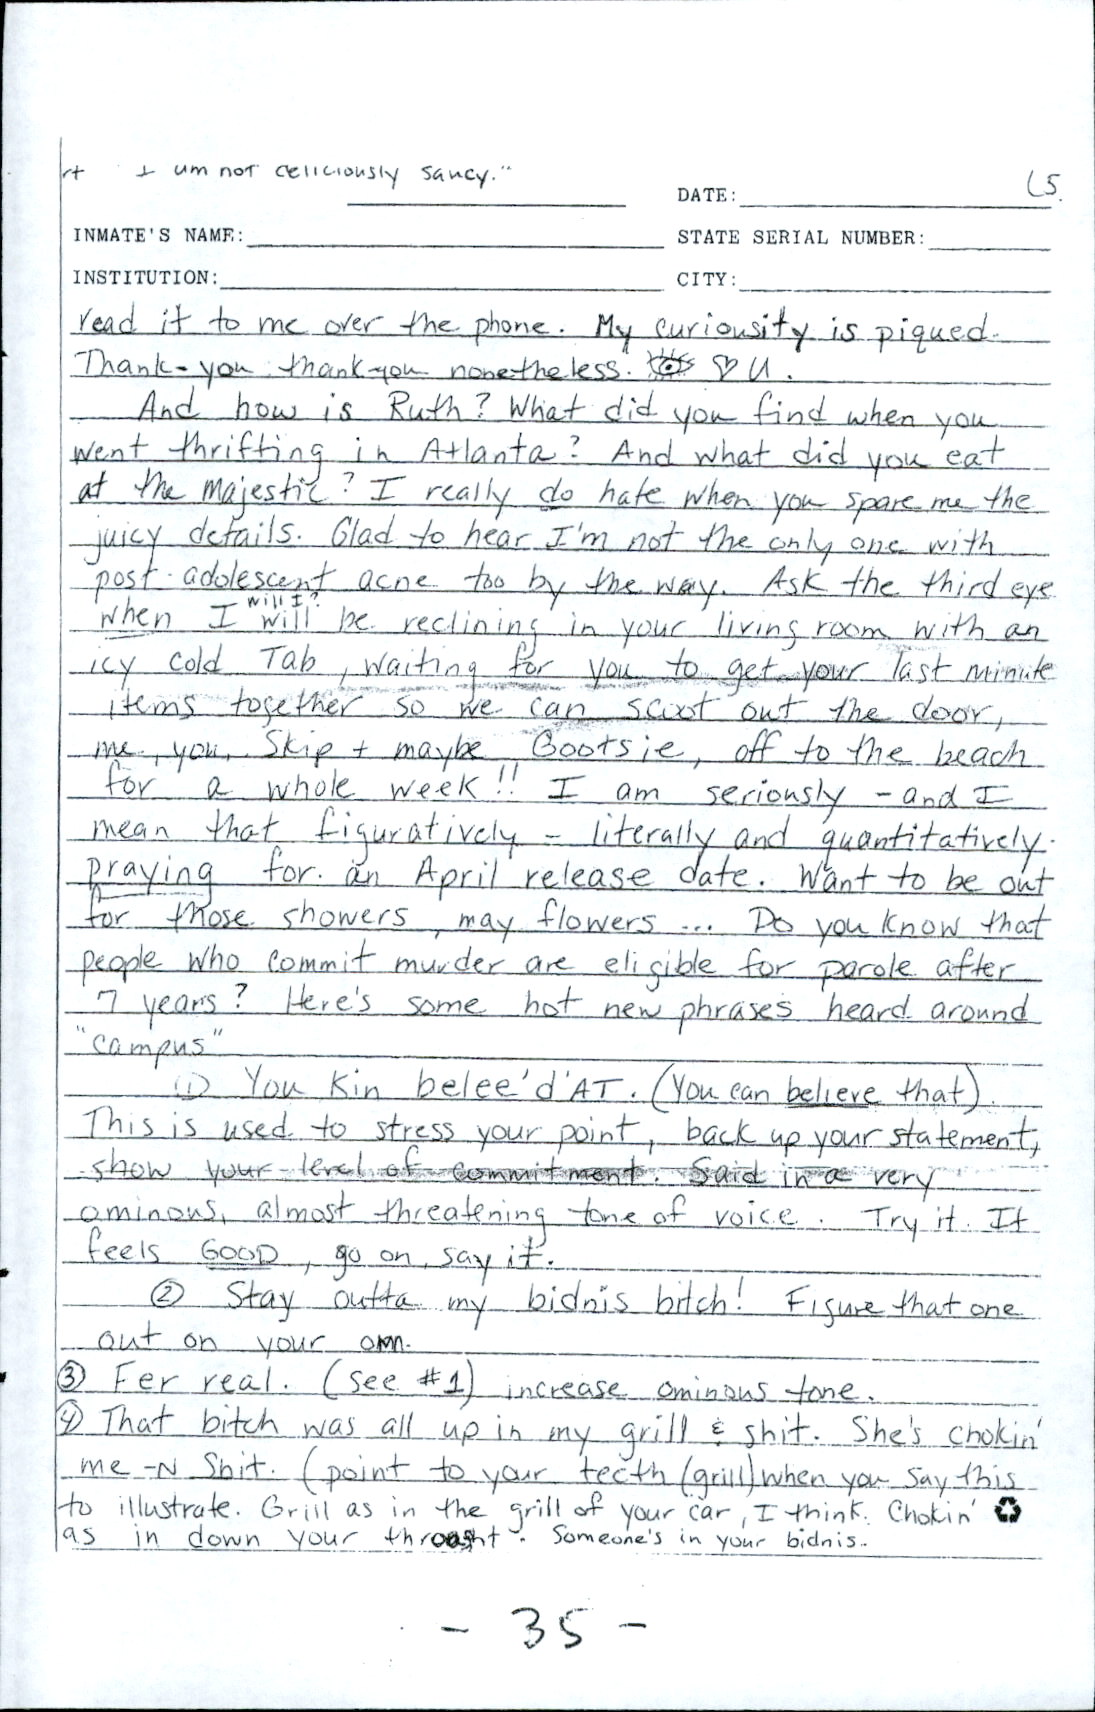 I am not deliciously saucy."
DATE:
INMATE'S NAME: STATE SERIAL NUMBER:
INSTITUTION: CITY:
read it to me over the phone. My curiousity is piqued.
Thank-you thank-you nonetheless. ♡ U.
And how is Ruth? What did you find when you
went thrifting in Atlanta? And what did you eat
at the Majestic? I really do hate when you spare me the
juicy details. Glad to hear I'm not the only one with
post-adolescent acne too by the way. Ask the third eye
will I?
when I will be reclining in your living room with an
icy cold Tab, waiting for you to get your last minute
items together so we can scoot out the door,
me, you, Skip + maybe Bootsie, off to the beach
for a whole week!! I am seriously - and I
mean that figuratively - literally and quantitatively.
praying for an April release date. Want to be out
for those showers, may flowers ... Do you know that
people who commit murder are eligible for parole after
7 years? Here's some hot new phrases heard around
"campus"
① You Kin belee'd'AT. (You can believe that).
This is used to stress your point, back up your statement,
show your level of commitment. Said in a very
ominous, almost threatening tone of voice. Try it. It
feels GOOD, go on, say it.
② Stay outta my bidnis bitch! Figure that one
out on your own.
③ Fer real. (see #1) increase ominous tone.
④ That bitch was all up in my grill & shit. She's chokin'
me -N Shit. (point to your teeth (grill) when you say this
to illustrate. Grill as in the grill of your car, I think. Chokin'
as in down your throat. Someone's in your bidnis.
- 35 -